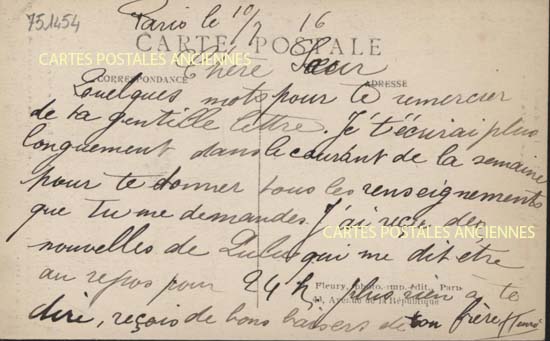 751454
Paris le 10/7 16
CARTES POSTALES ANCIENNES
CARTE POSTALE
Chère Sœur
CORRESPONDANCE
ADRESSE
Quelques mots pour te remercier
de ta gentille lettre. Je t'écrirai plus
longuement dans le courant de la semaine
CARTES POSTALES ANCIENNES
pour te donner tous les renseignements
que tu me demandes. J'ai reçu des
CARTES POSTALES ANCIENNES
nouvelles de Lulu qui me dit être
au repos pour 24 h plus rien a te
Fleury, photo.-imp.-édit., Paris
44, Avenue de la République
dire, reçois de bons baisers de ton frère Henri